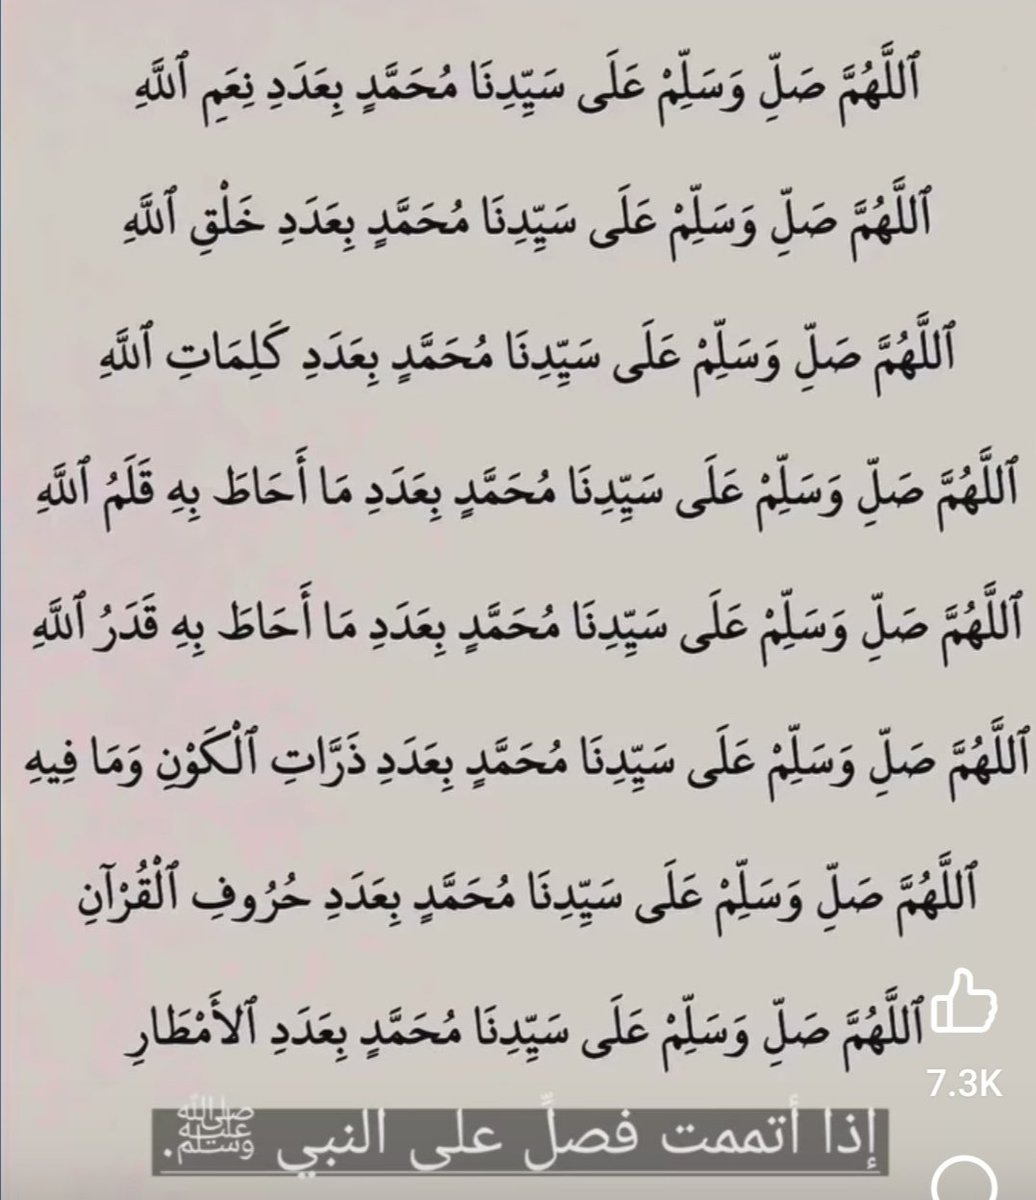 ٱللَّهُمَّ صَلِّ وَسَلِّمْ عَلَى سَيِّدِنَا مُحَمَّدٍ بِعَدَدِ نِعَمِ ٱللَّهِ
ٱللَّهُمَّ صَلِّ وَسَلِّمْ عَلَى سَيِّدِنَا مُحَمَّدٍ بِعَدَدِ خَلْقِ ٱللَّهِ
ٱللَّهُمَّ صَلِّ وَسَلِّمْ عَلَى سَيِّدِنَا مُحَمَّدٍ بِعَدَدِ كَلِمَاتِ ٱللَّهِ
ٱللَّهُمَّ صَلِّ وَسَلِّمْ عَلَى سَيِّدِنَا مُحَمَّدٍ بِعَدَدِ مَا أَحَاطَ بِهِ قَلَمُ ٱللَّهِ
ٱللَّهُمَّ صَلِّ وَسَلِّمْ عَلَى سَيِّدِنَا مُحَمَّدٍ بِعَدَدِ مَا أَحَاطَ بِهِ قَدَرُ ٱللَّهِ
ٱللَّهُمَّ صَلِّ وَسَلِّمْ عَلَى سَيِّدِنَا مُحَمَّدٍ بِعَدَدِ ذَرَّاتِ ٱلْكَوْنِ وَمَا فِيهِ
ٱللَّهُمَّ صَلِّ وَسَلِّمْ عَلَى سَيِّدِنَا مُحَمَّدٍ بِعَدَدِ حُرُوفِ ٱلْقُرْآنِ
ٱللَّهُمَّ صَلِّ وَسَلِّمْ عَلَى سَيِّدِنَا مُحَمَّدٍ بِعَدَدِ ٱلأَمْطَارِ
7.3K
إذا أتممت فصلِّ على النبي ﷺ.